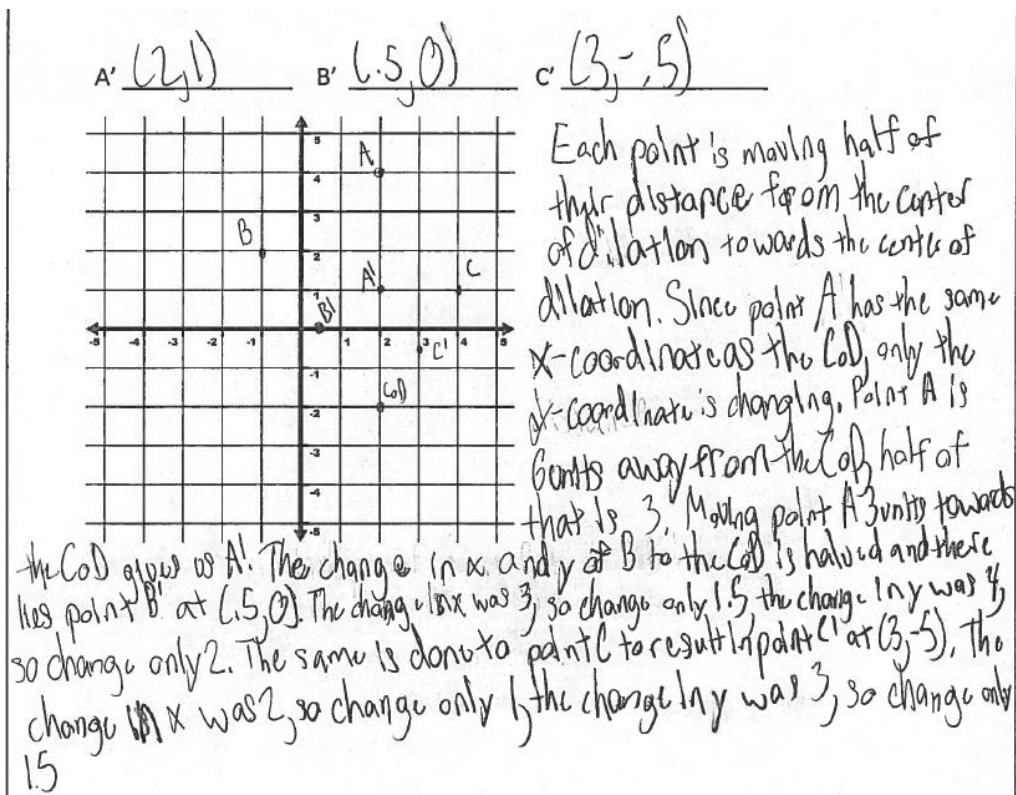 A' (2,1) B' (.5,0) C' (3,-.5)
Each point is moving half of
thier distance from the center
of dilation towards the center of
dilation. Since point A has the same
x-coordinate as the CoD, only the
y-coordinate is changing. Point A is
6 units away from the CoD, half of
that is 3. Moving point A 3 units towards
the CoD gives us A'. The change in x and y of B to the CoD is halved and there
lies point B' at (.5,0). The change in x was 3, so change only 1.5, the change in y was 4,
so change only 2. The same is done to point C to result in point C' at (3,-.5). The
change in x was 2, so change only 1, the change in y was 3, so change only
1.5
5
A
4
3
B
2
A' C
1
B'
-5 -4 -3 -2 -1 1 2 3 4 5
C'
-1
CoD
-2
-3
-4
-5